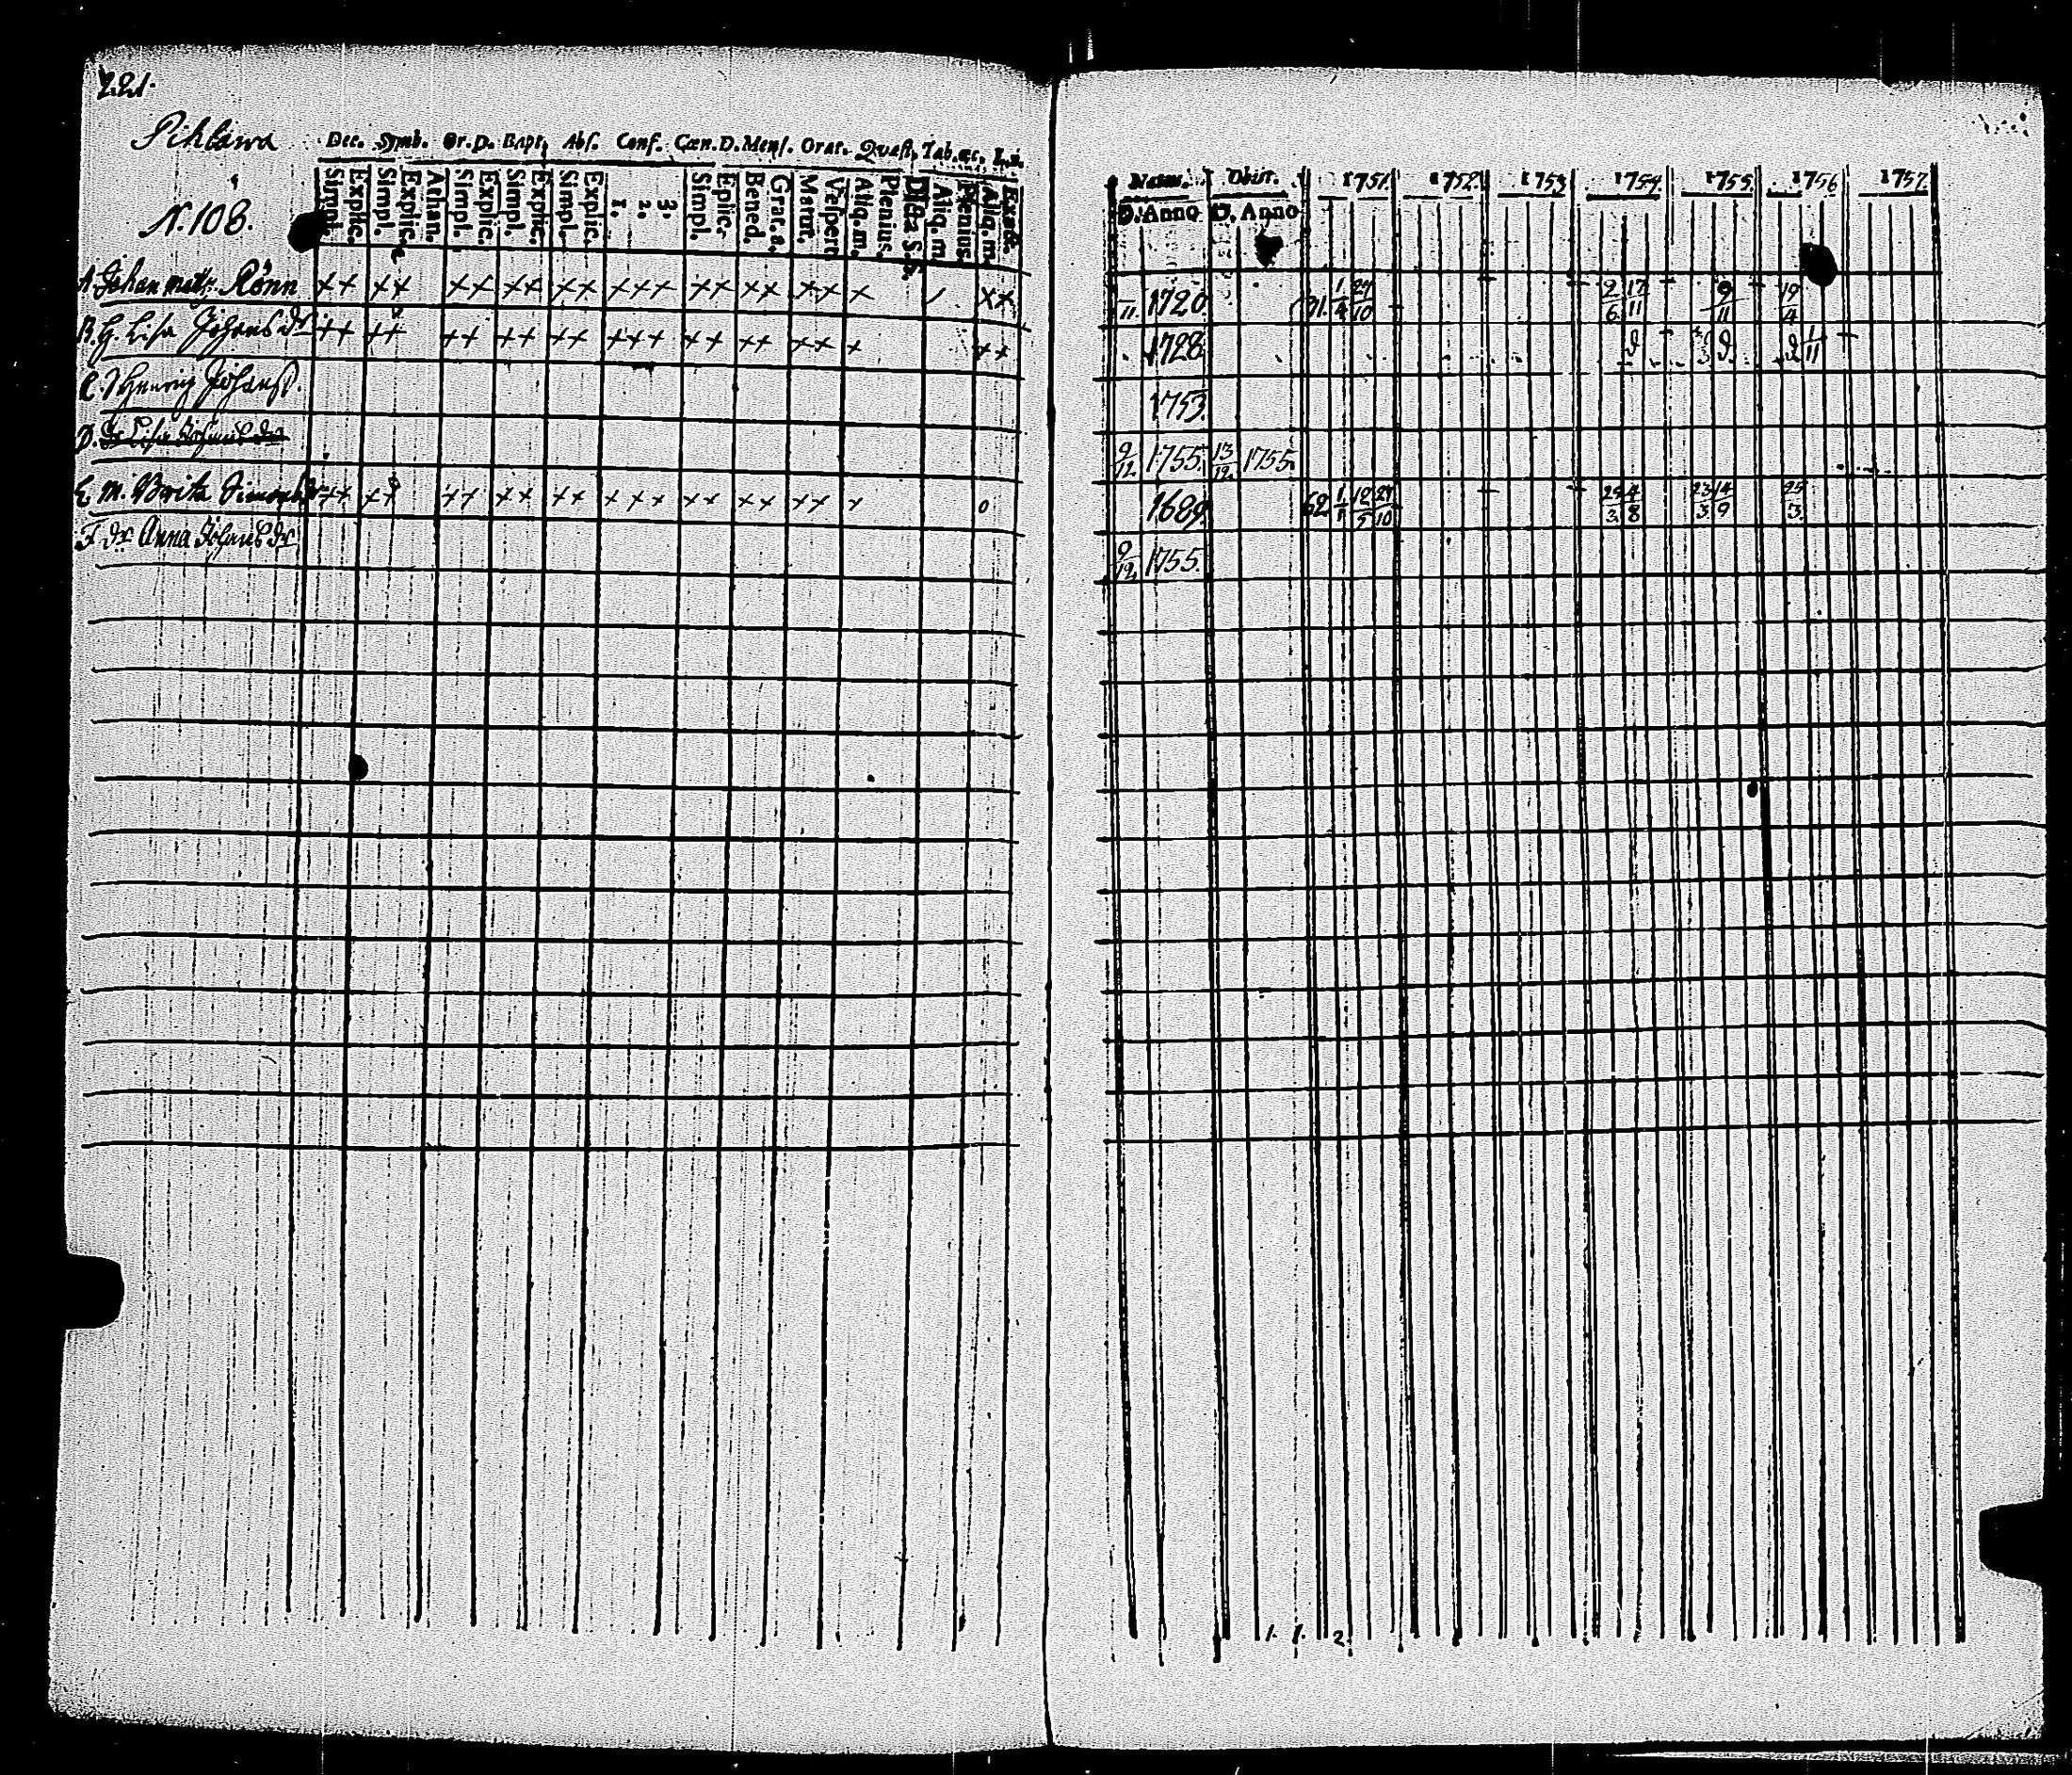 221.
Pihlawa
N. 108.
Dec. Symb. Or. D. Bapt. Abs. Conf. Cœn. D. Mens. Orat. Quæst. Tab. œc. L. n.
Simpl. Explic. Simpl. Explic. Athan. Simpl. Explic. Simpl. Explic. Simpl. Explic. 1. 2. 3. Simpl. Eplic. Bened. Grat. a. Matut. Vespert. Aliq. m. Plenius. Dicta S. S. Aliq. m. Plenius. Aliq. m. Exacte.
A. Johan Matts. Rönn ++ ++ ++ ++ ++ +++ ++ ++ ++ + ++
B. H. Lisa Johans dr ++ ++ ++ ++ ++ +++ ++ ++ ++ + ++
C. Henric Johans.
D. dr Lisa Johans dr
E. M. Brita Simons dr ++ ++ ++ ++ ++ +++ ++ ++ ++ + 0
F. dr Anna Johans dr
Natus. Obiit. 1751. 1752. 1753 1754. 1755. 1756 1757
D. Anno D. Anno
11. 1720. 31. 1/4 24/10 2/6 17/11 9/11 19/4
1728.
1753.
9/12. 1755. 13/12. 1755.
1689. 62. 12/5 27/10 4/8 23/3 14/9 25/3.
9/12. 1755.